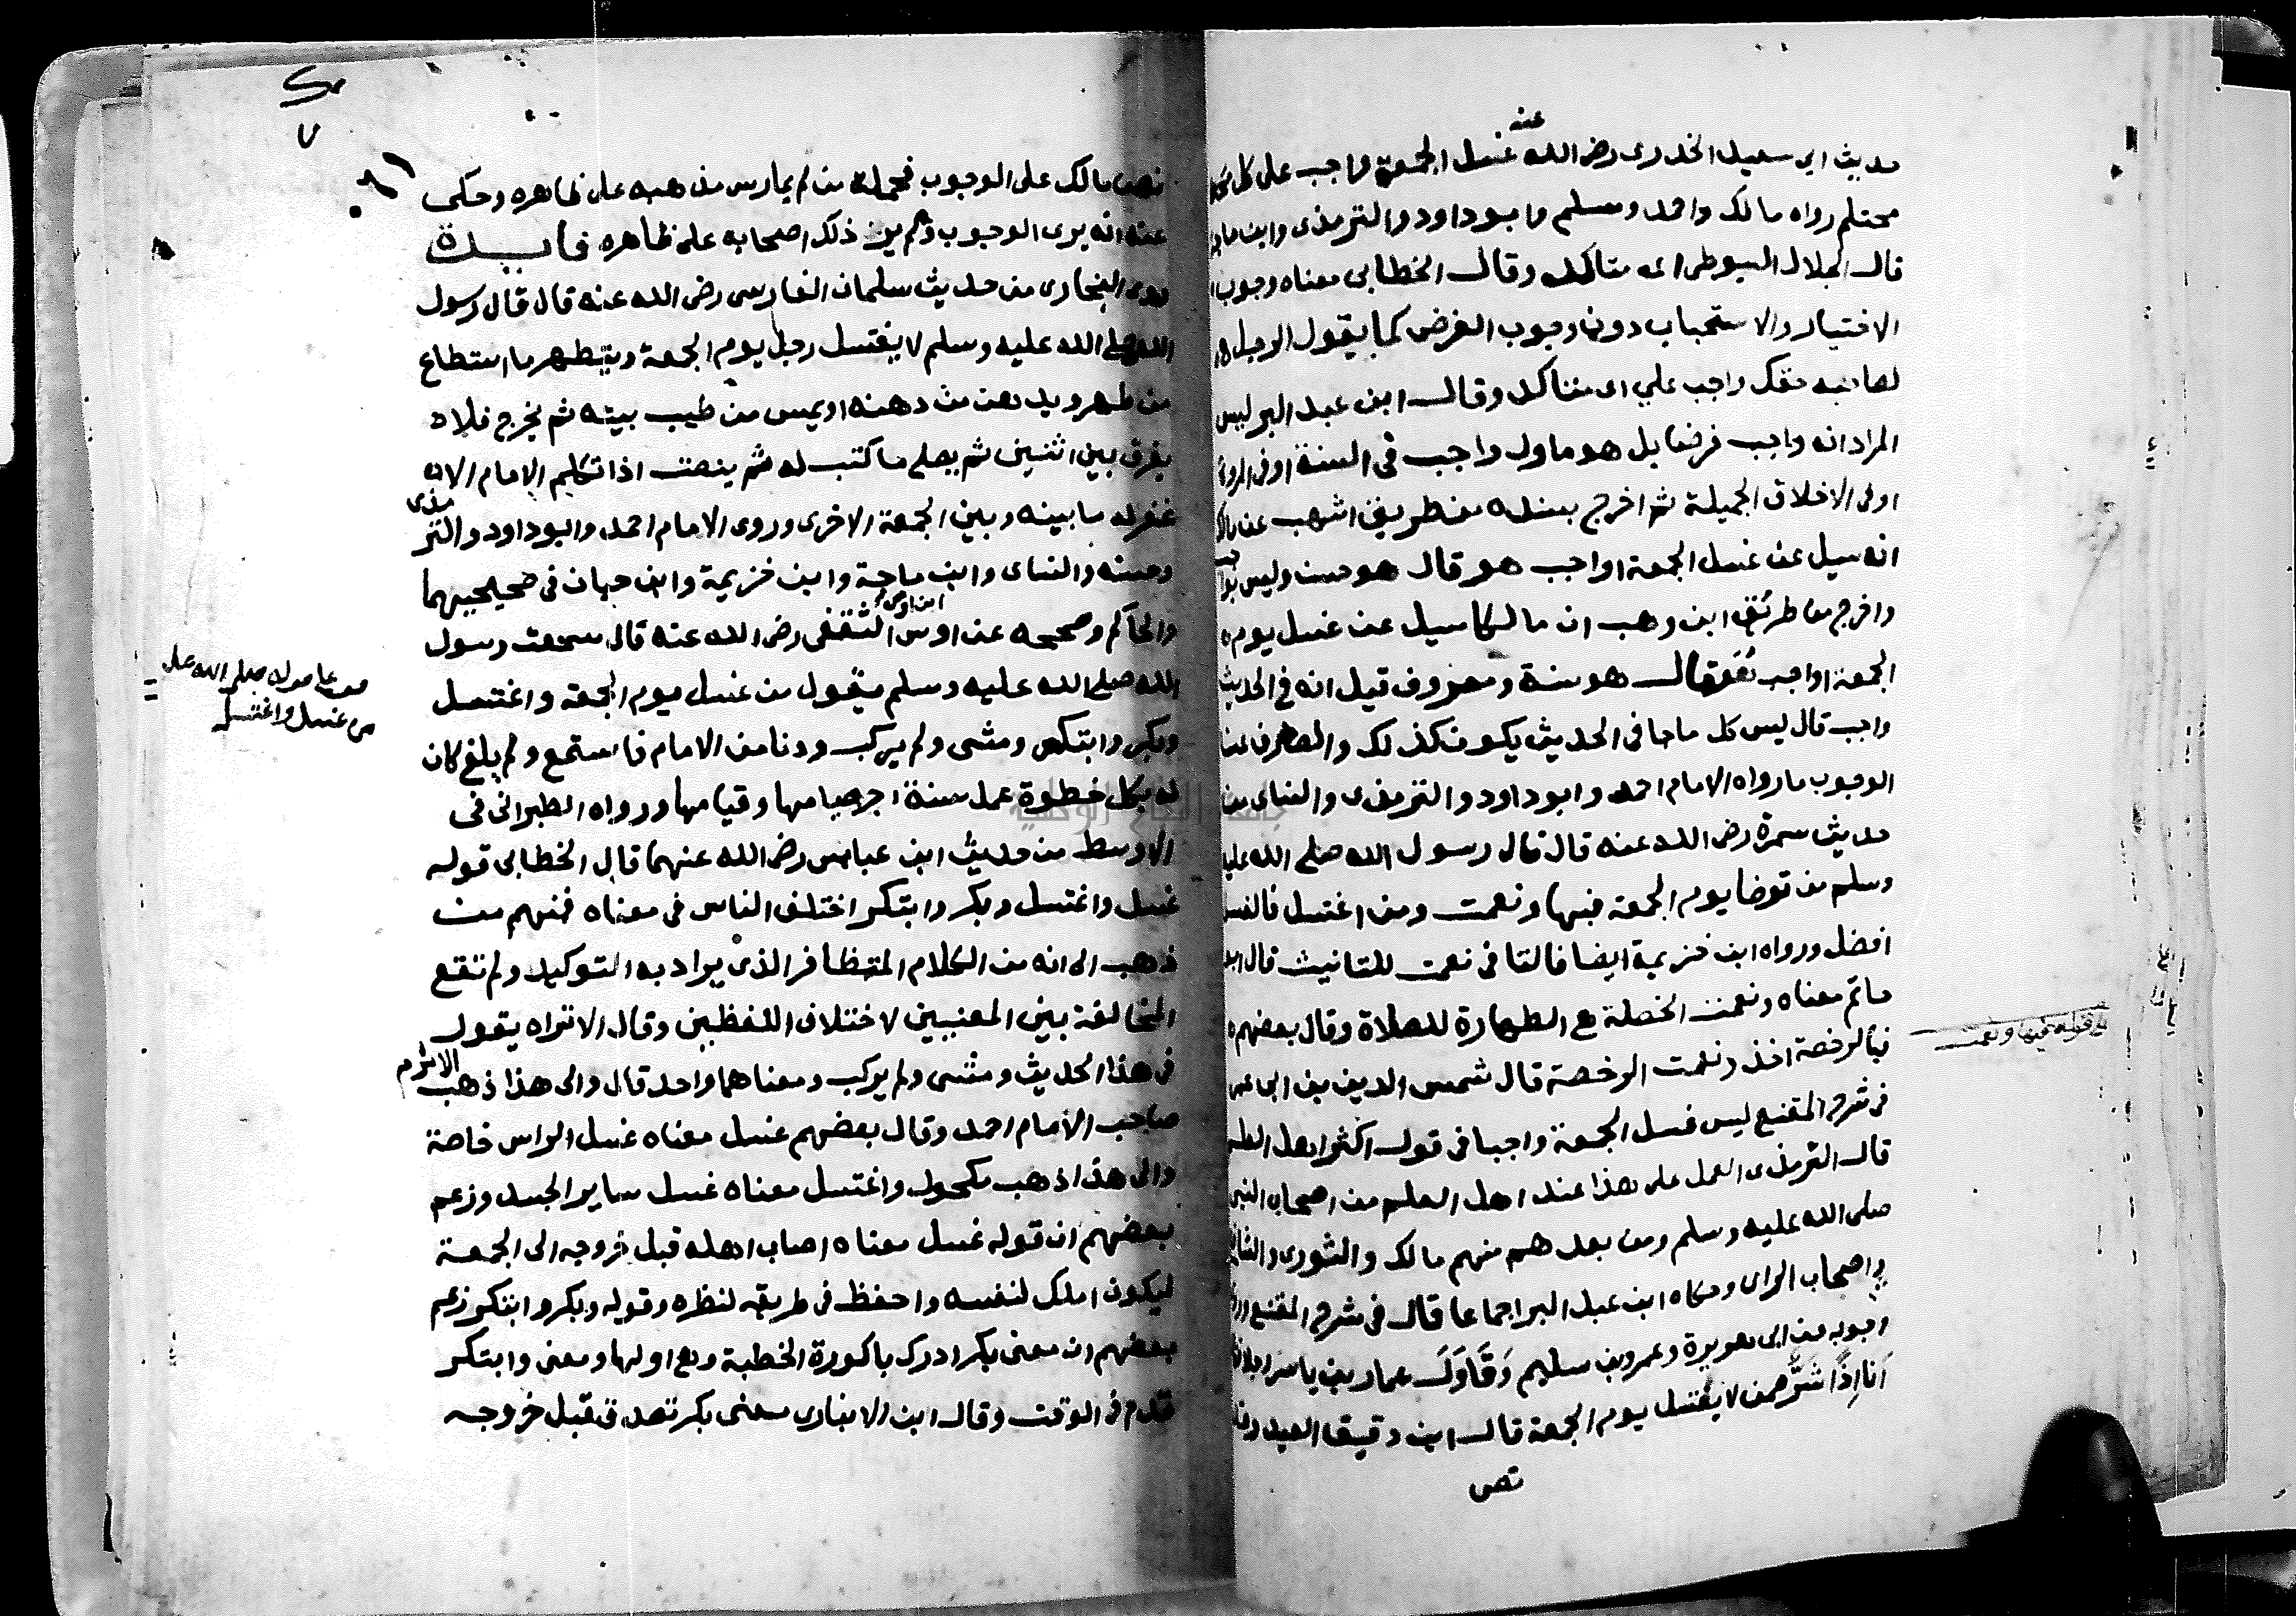 حديث ابي سعيد الخدري رضى الله عنه غسل الجمعة واجب على كل
محتلم رواه مالك واحمد ومسلم وابو داود والترمذى وابن ماجه
قال الجلال السيوطى اى متاكد وقال الخطابى معناه وجوب
الاختيار والاستحباب دون وجوب الفرض كما يقول الرجل
لصاحبه حقك واجب علي اى متاكد وقال ابن عبد البر ليس
المراد انه واجب فرضا بل هو ماول واجب فى السنة او فى المروة
او فى الاخلاق الجميلة ثم اخرج بسنده من طريق اشهب عن مالك
انه سيل عن غسل الجمعة اواجب هو قال هو حسن وليس بواجب
واخرج من طريق ابن وهب ان مالكا سيل عن غسل يوم
الجمعة اواجب هو قال هو سنة ومعروف قيل انه فى الحديث
واجب قال ليس كل ما جا فى الحديث يكون كذلك والصارف عن
الوجوب ما رواه الامام احمد وابو داود والترمذى والنساى من
حديث سمرة رضى الله عنه قال قال رسول الله صلى الله عليه
وسلم من توضا يوم الجمعة فبها ونعمت ومن اغتسل فالغسل
افضل ورواه ابن خزيمة ايضا فالتا فى نعمت للتانيث قال ابو
حاتم معناه ونعمت الخصلة هى الطهارة للصلاة وقال بعضهم
فبالرخصة اخذ ونعمت الرخصة قال شمس الدين بن ابى عمر
فى شرح المقنع ليس غسل الجمعة واجبا فى قول اكثر اهل العلم
قال الترمذى العمل على هذا عند اهل العلم من اصحاب النبى
صلى الله عليه وسلم ومن بعدهم منهم مالك والثورى والشافعى
واصحاب الراى وحكاه ابن عبد البر اجماعا قال فى شرح المقنع وروى
وجوبه عن ابى هريرة وعمرو بن سليم وقاول عمار بن ياسر رجلا فقال
انا اذا شر ممن لا يغتسل يوم الجمعة قال ابن دقيق العيد وقد
نص
قوله فبها ونعمت
نص مالك على الوجوب فحمله من لم يمارس مذهبه على ظاهره وحكى
عنه انه يرى الوجوب ولم ير ذلك اصحابه على ظاهره فايدة
روى البخارى من حديث سلمان الفارسى رضى الله عنه قال قال رسول
الله صلى الله عليه وسلم لا يغتسل رجل يوم الجمعة ويتطهر ما استطاع
من طهر ويدهن من دهنه او يمس من طيب بيته ثم يخرج فلا
يفرق بين اثنين ثم يصلى ما كتب له ثم ينصت اذا تكلم الامام الا
غفر له ما بينه وبين الجمعة الاخرى وروى الامام احمد وابو داود والترمذى
وحسنه والنساى وابن ماجة وابن خزيمة وابن حبان فى صحيحيهما
والحاكم وصححه عن اوس ابن اوس الثقفى رضى الله عنه قال سمعت رسول
الله صلى الله عليه وسلم يقول من غسل يوم الجمعة واغتسل
وبكر وابتكر ومشى ولم يركب ودنا من الامام فاستمع ولم يلغ كان
له بكل خطوة عمل سنة اجر صيامها وقيامها ورواه الطبرانى فى
الاوسط من حديث ابن عباس رضى الله عنهما قال الخطابى قوله
غسل واغتسل وبكر وابتكر اختلف الناس فى معناه فمنهم من
ذهب الى انه من الكلام المتظافر الذى يراد به التوكيد ولم تقع
المخالفة بين المعنيين لاختلاف اللفظين وقال الا تراه يقول
فى هذا الحديث ومشى ولم يركب ومعناهما واحد قال والى هذا ذهب الاثرم
صاحب الامام احمد وقال بعضهم غسل معناه غسل الراس خاصة
والى هذا ذهب مكحول واغتسل معناه غسل ساير الجسد وزعم
بعضهم ان قوله غسل معناه اصاب اهله قبل خروجه الى الجمعة
ليكون املك لنفسه واحفظ فى طريقه لنظره وقوله وبكر وابتكر زعم
بعضهم ان معنى بكر ادرك باكورة الخطبة وهى اولها ومعنى وابتكر
قدم فى الوقت وقال ابن الانبارى معنى بكر تصدق قبل خروجه
قوله صلى الله عليه
من غسل واغتسل